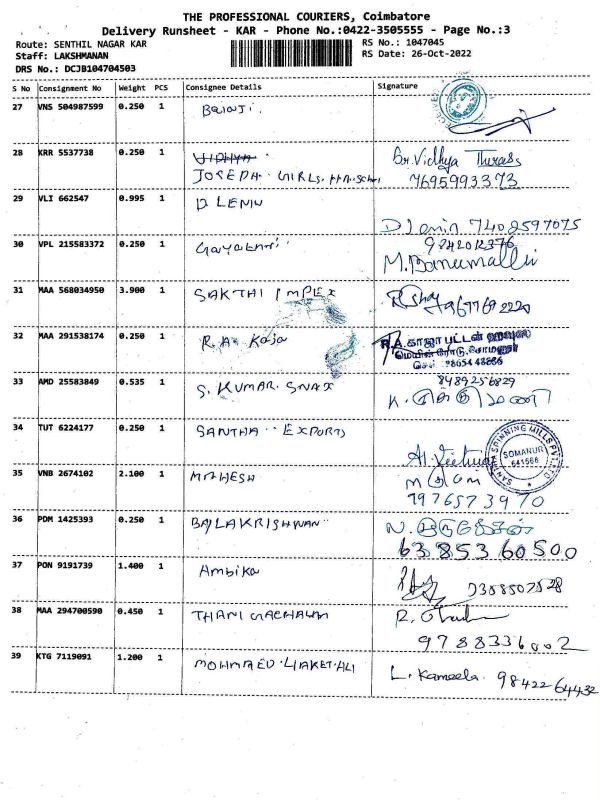 THE PROFESSIONAL COURIERS, Coimbatore
Delivery Runsheet - KAR - Phone No.:0422-3505555 - Page No.:3
Route: SENTHIL NAGAR KAR
RS No.: 1047045
Staff: LAKSHMANAN
RS Date: 26-Oct-2022
DRS No.: DCJB104704503
S No Consignment No Weight PCS Consignee Details Signature
27 VNS 504987599 0.250 1 Balaji
28 KRR 5537738 0.250 1
JOSEPH GIRLS
7695993373
29 VLI 662547 0.995 1 D LENIN
D Lenin 7402597075
30 VPL 215583372 0.250 1 Gayathri
9842012376
31 MAA 568034950 3.900 1 SAKTHI IMPEX
32 MAA 291538174 0.250 1 R.A. Kaja
R.A. காஜா பட்டன் ஹவுஸ்
மெயின்ரோடு, சோமனூர்
செல் : 98654 48886
33 AMD 25583849 0.535 1 S. KUMAR. SNAX
8489256829
34 TUT 6224177 0.250 1 SANTHA EXPORTS
SPINNING MILLS PVT LTD
SOMANUR
641668
35 VNB 2674102 2.100 1 MAHESH
7976573970
36 PDM 1425393 0.250 1 BALAKRISHNAN
6385360500
37 PON 9191739 1.400 1 Ambika
38 MAA 294700590 0.450 1 THANIGACHALAM
9788336002
39 KTG 7119091 1.200 1 MOHMAED LIAKET ALI
L. Kameela 9842264432